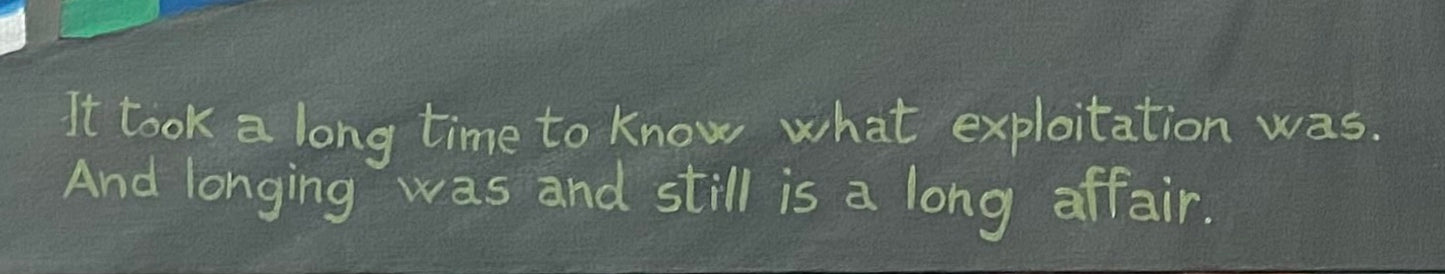 It took a long time to know what exploitation was.
And longing was and still is a long affair.